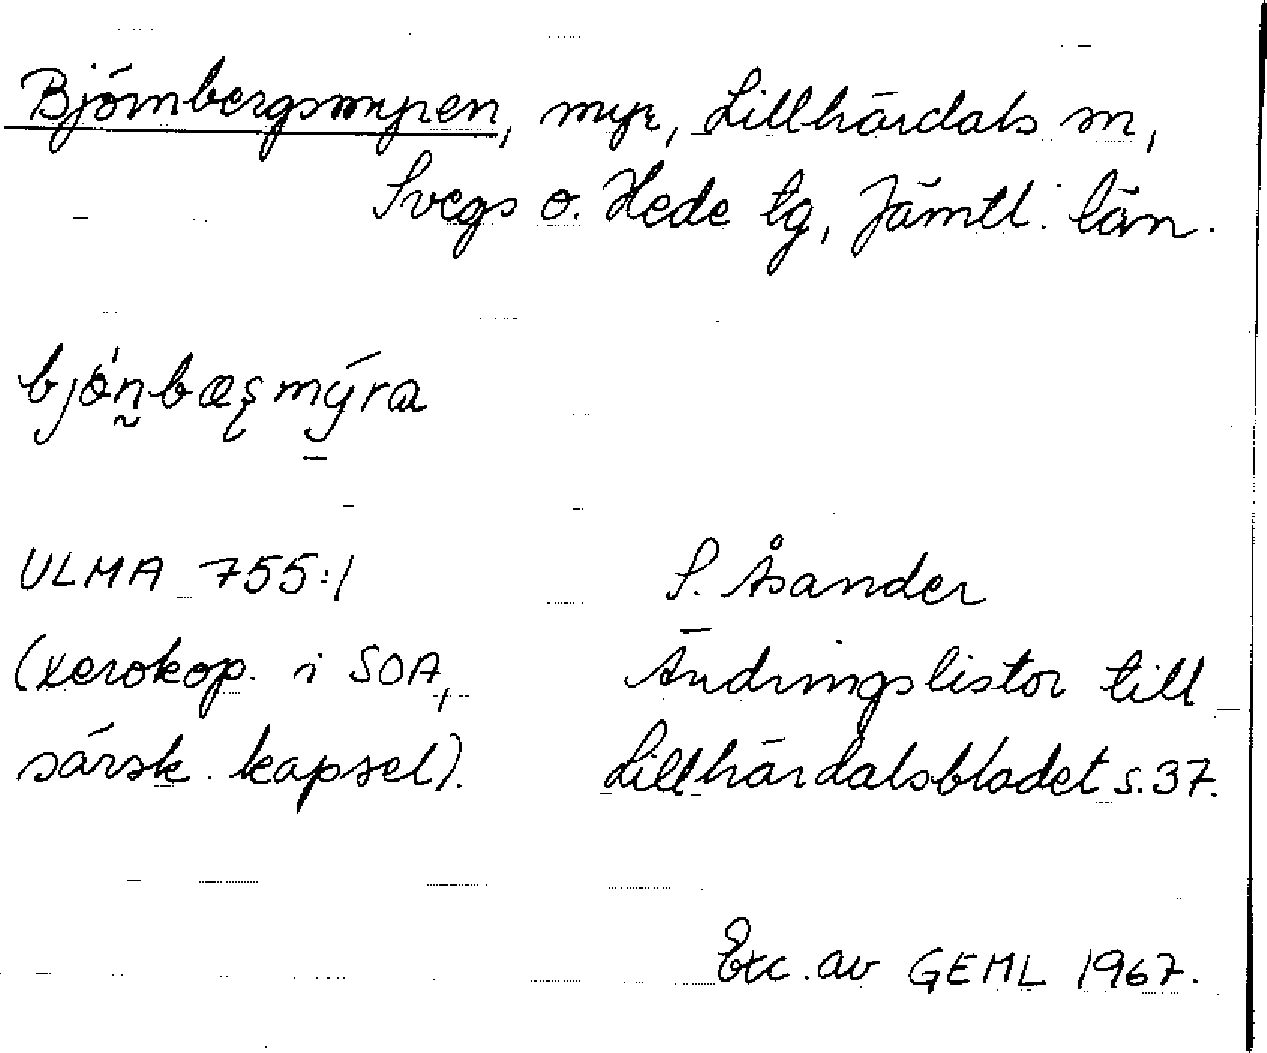 Björnbergsmyren, myr, Lillhärdals sn,
Svegs o. Hede tg, Jämtl. län.
bjö́n̰bæşmýra
ULMA 755:1 S. Åsander
(xerokop. i SOA, Ändringslistor till
särsk. kapsel). Lillhärdalsbladet s. 37.
Exc. av GEML 1967.